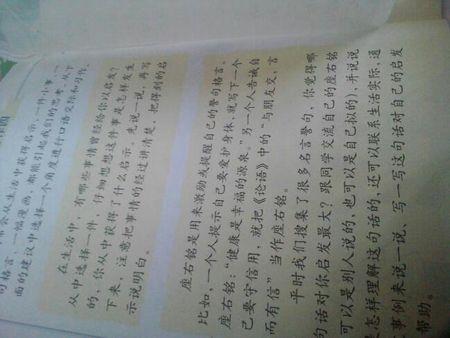 从生活中获得启示。一件小事、一
句格言、一幅漫画，都能引起我们的思考。从下
面的建议中选择一个角度进行口语交际和习作。
在生活中，有哪些事情曾经给你以启发？
从中选择一件，仔细想想这件事是怎样发生
的，你从中获得了什么启示，先说一说，再写
下来，注意把事情的经过讲清楚，把得到的启
示说明白。
座右铭是用来激励或提醒自己的警句格言。
比如，一个人提示自己要爱护身体，就写下一个
座右铭：“健康是幸福的源泉。”另一个人告诫自
己要守信用，就把《论语》中的“与朋友交，言
而有信”当作座右铭。
平时我们搜集了很多名言警句，你觉得哪
句话对你启发最大？跟同学交流自己的座右铭
可以是别人说的，也可以是自己拟的），并说说
是怎样理解这句话的，还可以联系生活实际，通
事例来说一说，写一写这句话对自己的启发
帮助。